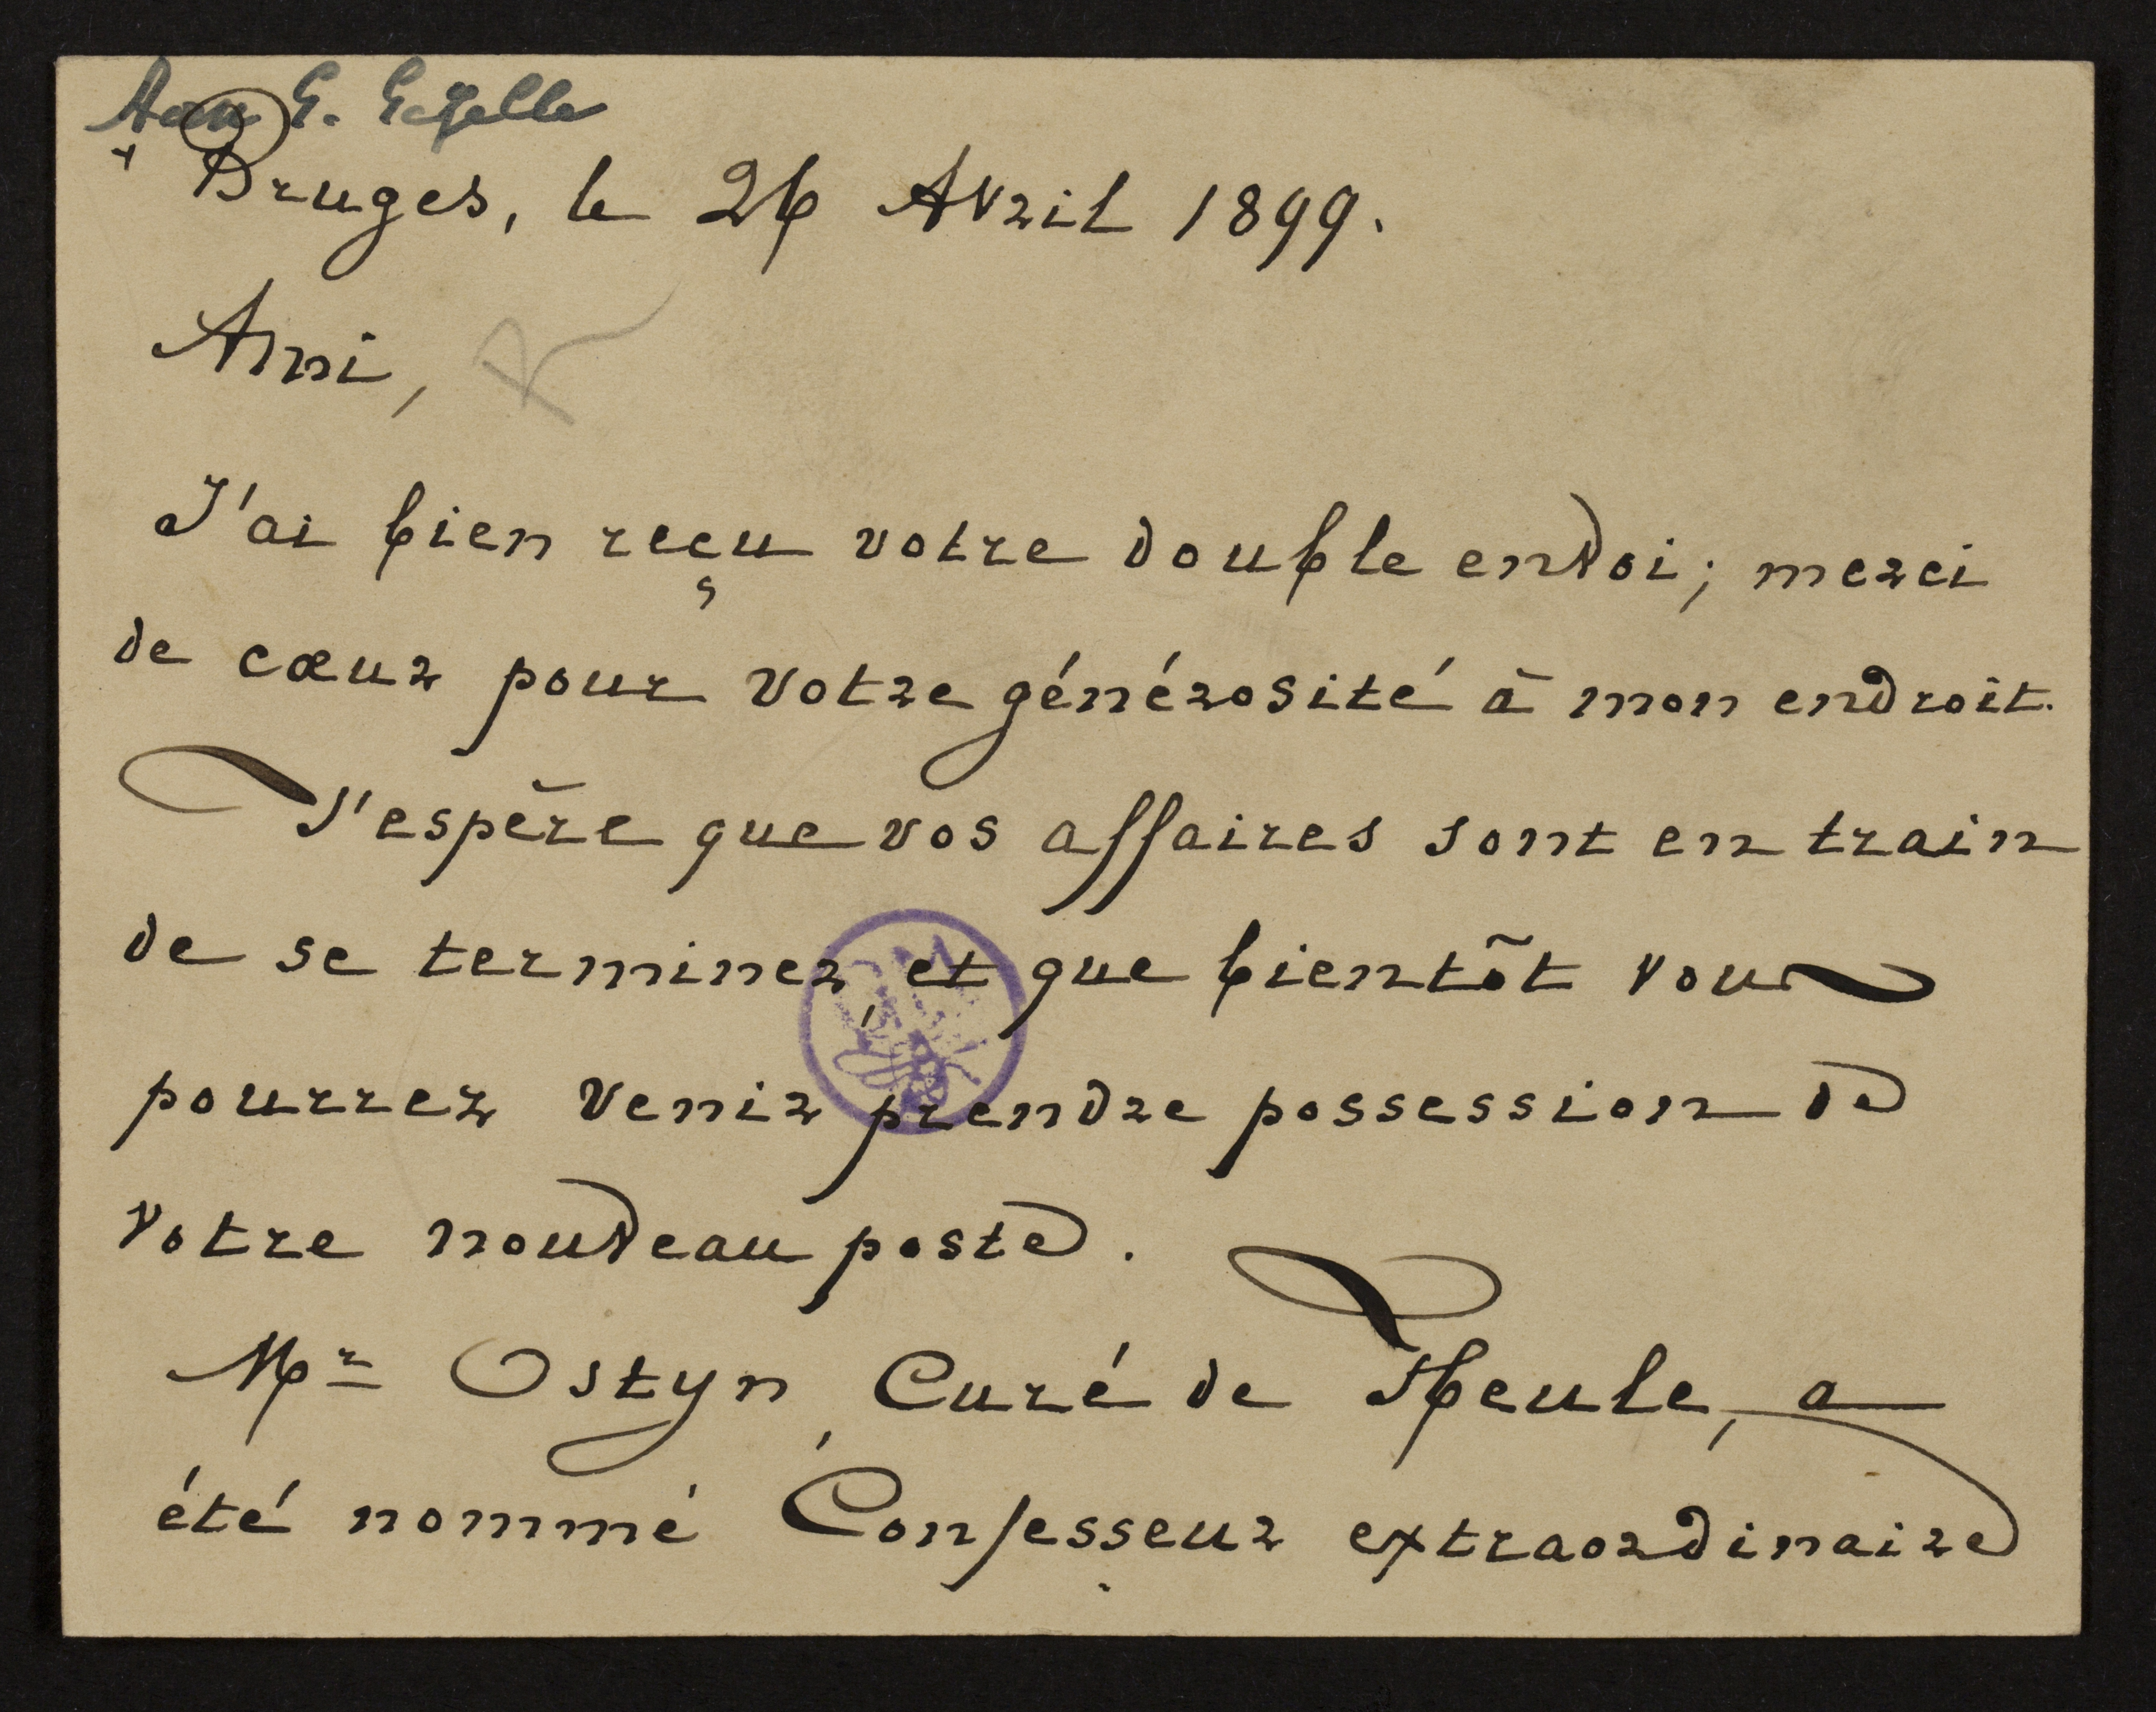 Aan G. Gezelle
+ Bruges, le 26 Avril 1899.
Ami,
R
J'ai bien reçu votre double envoi; merci
de cœur pour votre générosité à mon endroit.
J'espère que vos affaires sont en train
de se terminer, et que bientôt vous
pourrez venir prendre possession de
votre nouveau poste.
Mr Ostyn, Curé de Heule, a
été nommé Confesseur extraordinaire